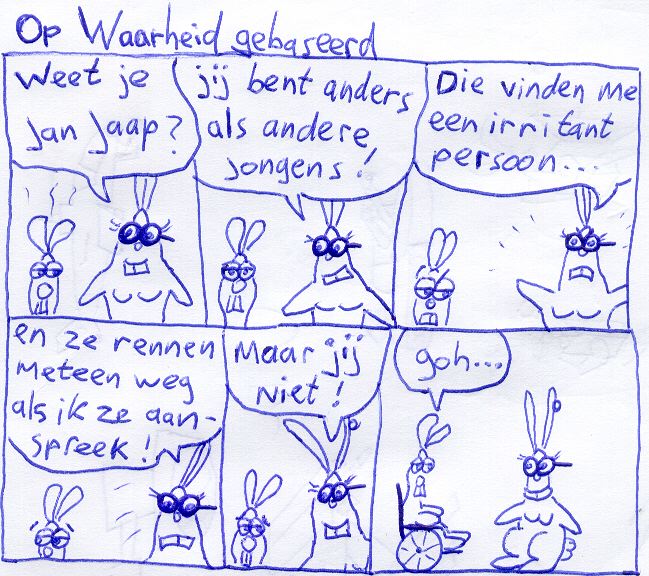 Op Waarheid gebaseerd
Weet je
Jan Jaap?
jij bent anders
als andere
jongens!
Die vinden me
een irritant
persoon...
en ze rennen
meteen weg
als ik ze aan-
spreek!
Maar jij
niet!
goh...